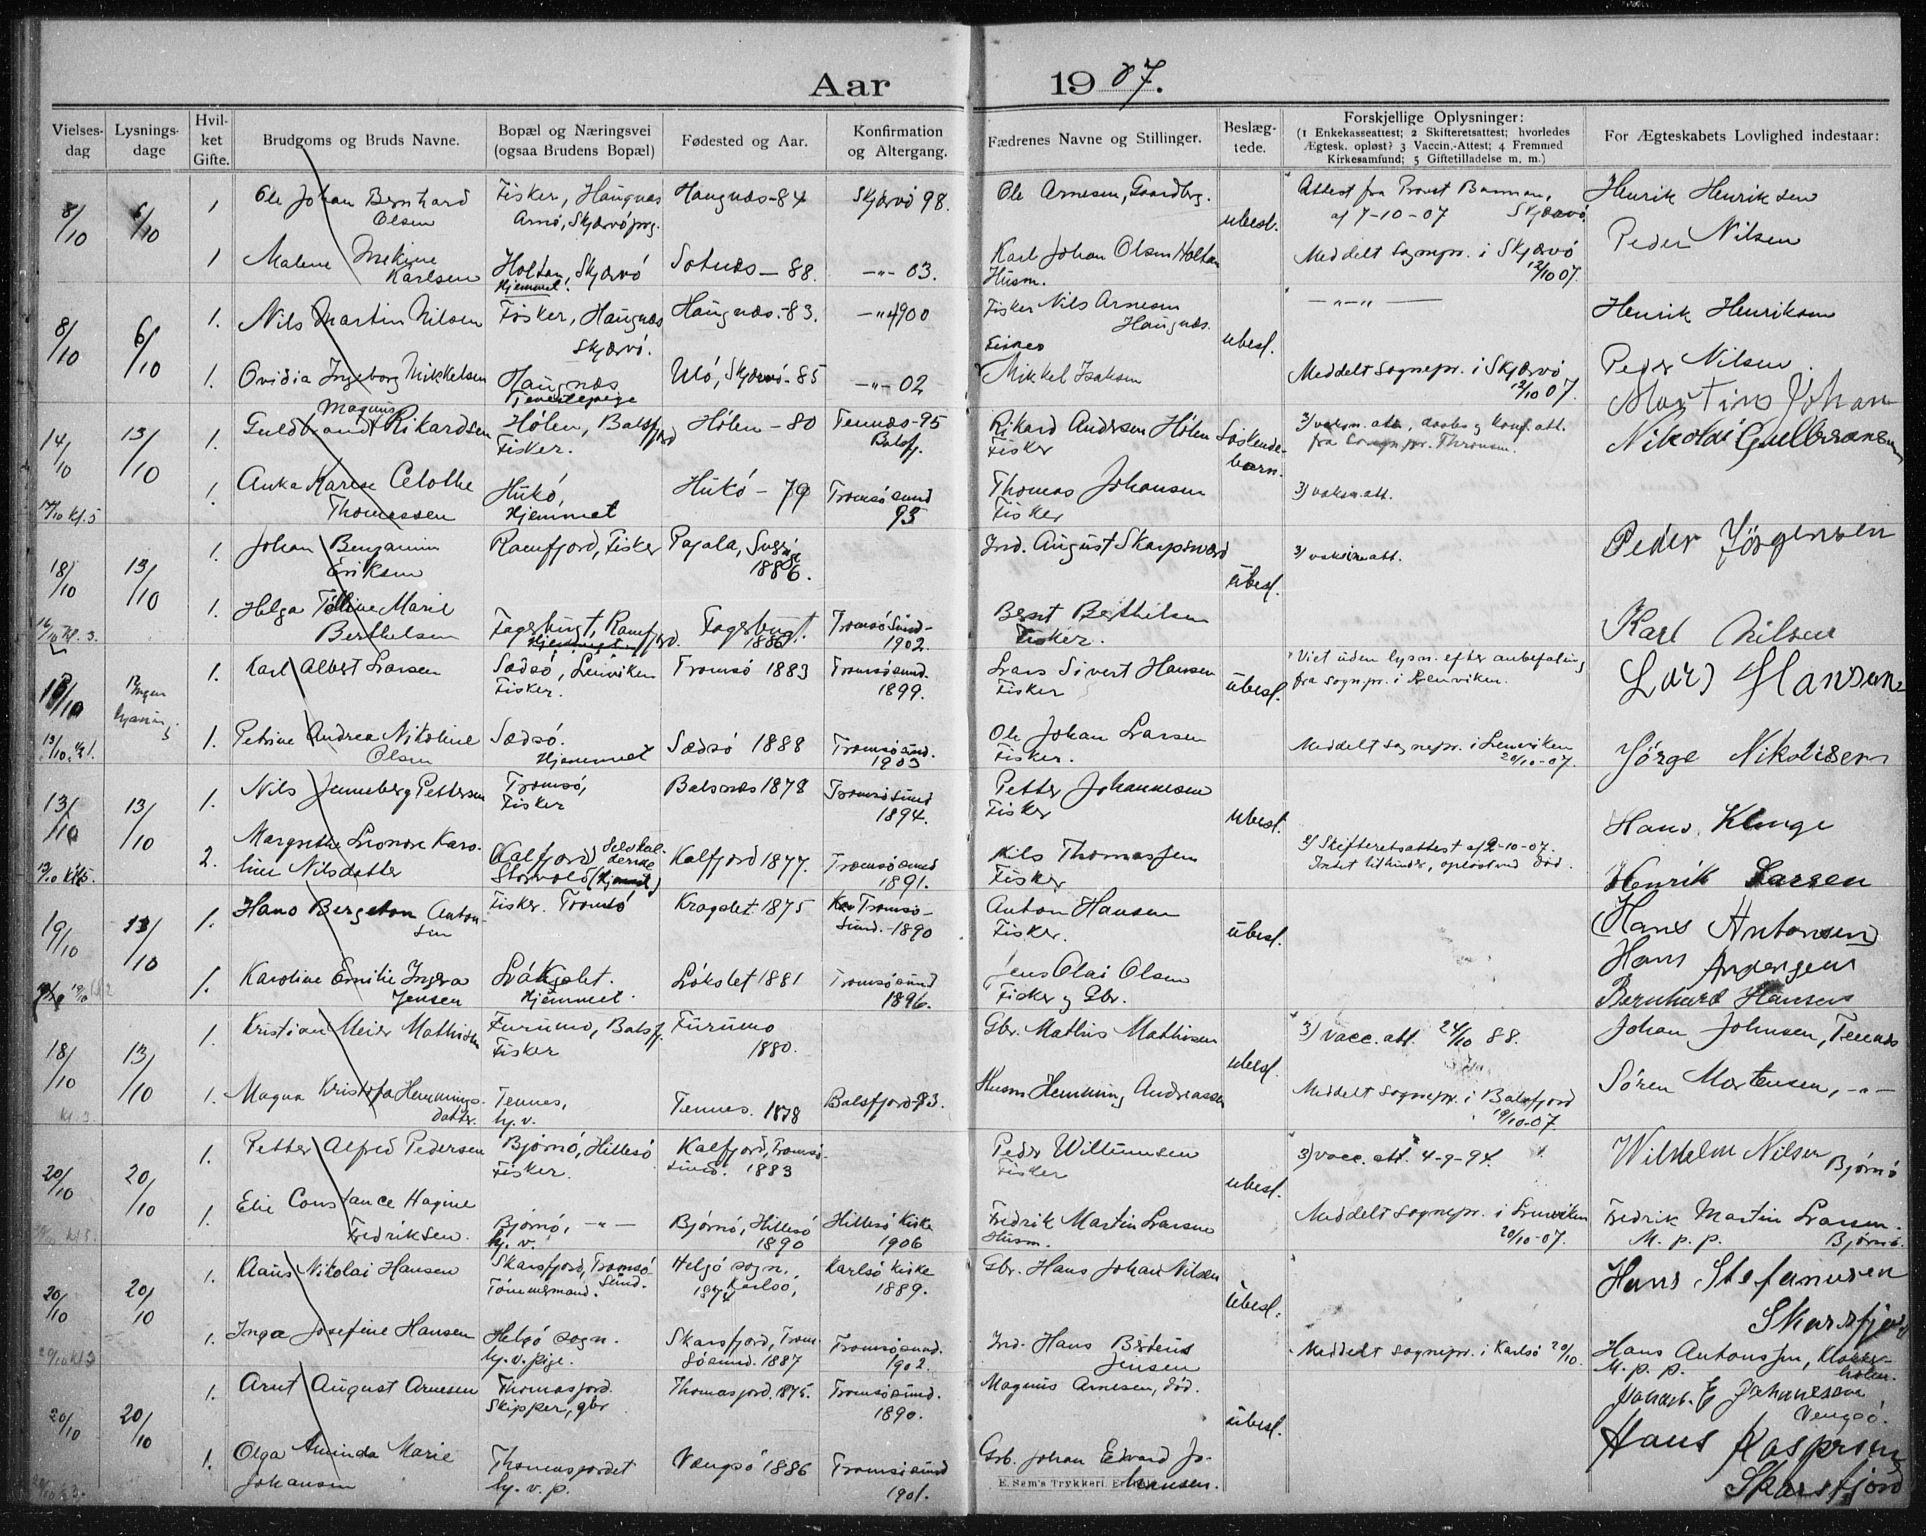 Aar 1907.
Vielses-dag
Lysnings-dage
Hvil-ket Gifte.
Brudgoms og Bruds Navne.
Bopæl og Næringsvei (ogsaa Brudens Bopæl)
Fødested og Aar.
Konfirmation og Altergang.
Fædrenes Navne og Stillinger.
Beslæg-tede.
Forskjellige Oplysninger:
(1 Enkekasseattest; 2 Skifteretsattest; hvorledes
Ægtesk. opløst? 3 Vaccin.-Attest; 4 Fremmed
Kirkesamfund; 5 Giftetilladelse m. m.)
For Ægteskabets Lovlighed indestaar:
8/10 6/10 1 Ole Johan Bernhard Olsen Fisker, Haugnæs Arnø, Skjærvø prg. Haugnæs-84 Skjærvø 98. Ole Arnesen, Gaardbrg. ubesl. Attest fra Provst af 7-10-07 Skjærvø. Henrik Henriksen
1 Malene Karlsen Holtan, Skjærvø Hjemmet. Sotnæs-88. -"- 03. Karl Johan Olsen Holtan Husm. Meddelt sognepr. i Skjærvø 12/10 07. Peder Nilsen
8/10 6/10 1. Nils Martin Nilsen Fisker, Haugnæs Skjærvø. Haugnæs-83. -"- 1900 Fisker Nils Arnesen Haugnæs. ubesl. -"-"- Henrik Henriksen
1. Ovidia Ingeborg Mikkelsen Haugnæs Tjenestepige Uló, Skjærvø-85 -"- 02 Fisker Mikkel Isaksen Meddelt sognepr. i Skjærvø 12/10 07. Peder Nilsen.
14/10 13/10 1. Guldbrandt Magnus Rikardsen Hølen, Balsfjord Fisker. Hølen-80 Tennæs-95 Balsfj. Rikard Andersen Hølen Fisker Søskende-barn. 3) vaksin. att., daabs og konf. att. fra Sognepr. Martins Johan Nikolai Gulbransen
14/10 kl. 5 1. Anka Karese Thomassen Hükó, Hjemmet Hükó-79 Tromsøsund 93 Thomas Johansen Fisker 3) vaksin.att.
18/10 13/10 1. Johan Benjamin Eriksen Ramfjord, Fisker Pajala, Sverige 1886. Ind. August Skarpsværd ubesl. 3) vaksin att. Peder Jörgensen
16/10 kl. 3. 1. Helga Marie Berthelsen Fagerbugt, Ramfjord. Hjemmet Fagerbugt. 1886 Tromsøsund-1902. Bernt Berthelsen Fisker. Karl Nilsen
13/10 Ingen lysning 1. Karl Albert Larsen Sædsó, Lenviken Fisker. Tromsø 1883 Tromsøsund. 1899. Lars Sivert Hansen Fisker ubesl. Viet uden lysn. efter anbefaling fra sognepr. i Lenviken. Lars Hansen
13/10 1. Petrine Andrea Nikoline Olsen Sædsó. Hjemmet Sædsó 1888 Tromsøsund. 1903 Ole Johan Larsen Fisker. Meddelt sognepr. i Lenviken 20/10-07. Jörge Nikolisen
13/10 13/10 1. Nils Jenneberg Pettersen Tromsø, Fisker Balsnæs 1878 Tromsøsund 1894. Petter Johannesen Fisker ubesl. Hans Klinge
13/10 kl 5. 2. Margrethe Leonore Karoline Nilsdatter Kalfjord Storvold (Hjemmet) Kalfjord 1877. Tromsøsund 1891. Nils Thomassen Fisker 2) Skifteretsattest af 2-10-07. Intet til hinder, opløst ved død. Henrik Larsen
19/10 13/10 1. Hans Bergeton Antonsen Fisker. Tromsó 1875 Tromsø-Sund. 1890 Anton Hansen Fisker. ubesl. Hans Antonsen
19/10 1. Karoline Emilie Ingra Jensen Hjemmet. 1881 Tromsøsund 1896. Jens Olai Olsen Fisker og Gbr. Hans Andersen Bernhard Hansen
18/10 13/10 1. Kristian Meier Mathisen Furumo, Balsfj. Fisker Furumo 1880. Gbr. Mathis Mathisen ubesl. 3) vacc. att. 24/10 88. Johan Johnsen, Tennæs
kl. 3 1. Magna Kristofa Hemmingsdatter. Tennes, hj. v. Tennes. 1878 Balsfjord-93. Husm Hemming Andreassen Meddelt sognepr. i Balsfjord 19/10-07. Sören Mortensen, -"-
20/10 20/10 1. Petter Alfred Pedersen Bjørnø, Hillesó Fisker. Kalfjord, Tromsø-sund. 1883 Peder Willumsen Fisker ubesl. 3) vacc. att. 4-9-94. Wilhelm Nilsen Bjørnø
1. Elie Constance Hagine Fredriksen. Bjørnø, -"- hj. v. Bjørnø, Hillesó 1890 Hillesó Kirke 1906 Fredrik Martin Larsen Husm. Meddelt sognepr. i Lenviken 20/10-07. Fredrik Martin Larsen. M. p. p. Bjørnø.
20/10 20/10 1. Klaus Nikolai Hansen Skarsfjord, Tromsø Sund. Tømmermand. Helgø sogn. Karlsó, 1874 Karlsó Kirke 1889. Gbr. Hans Johan Nilsen ubesl. Hans Stefanusen Skarsfjord
20/10 kl 3 1. Inga Josefine Hansen Helgø sogn. hj. v. pige. Skarsfjord, Tromsøsund. 1887 Tromsøsund. 1902. Ind. Hans Jensen Meddelt sognepr. i Karlsó 20/10. Hans Antonssen, M. p. p.
20/10 20/10 1. Arnt August Arnesen Thomasjord. Skipper, gbr Thomasjord. 1875. Tromsøsund. 1890. Magnus Arnesen, död. ubesl. E Johanesen Vengsó.
1. Olga Aminda Marie Johansen Thomasjordet hj. v. p. Vængsó 1886 Tromsøsund 1901. Grb. Johan Edvard Johansen. Hans Kaspersen Skarsfjord
E. Sem's Trykkeri.